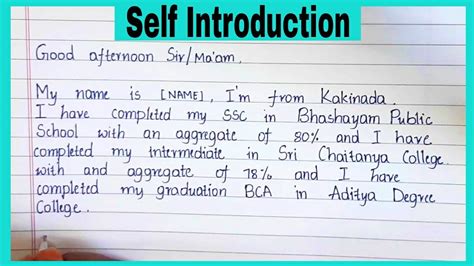 Self Introduction
Good afternoon Sir/Ma'am.
My name is [NAME], I'm from Kakinada.
I have completed my SSC in Bhashayam Public
School with an aggregate of 80% and I have
completed my intermediate in Sri Chaitanya College.
with and aggregate of 78% and I have
completed my graduation BCA in Aditya Degree
College.